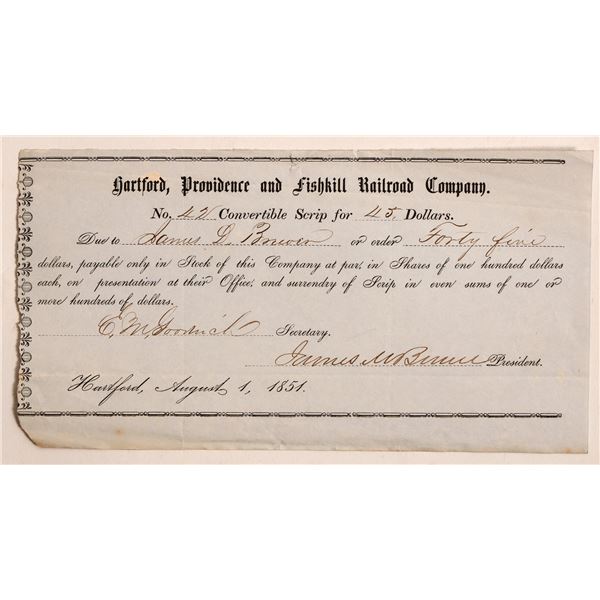 Hartford, Providence and Fishkill Railroad Company.
No. 42 Convertible Scrip for 45 Dollars.
Due to James D. Brewer or order Forty five
dollars, payable only in Stock of this Company at par, in Shares of one hundred dollars
each, on presentation at their Office, and surrendry of Scrip in even sums of one or
more hundreds of dollars.
E. M. Goodrich Secretary.
James President.
Hartford, August 1, 1851.